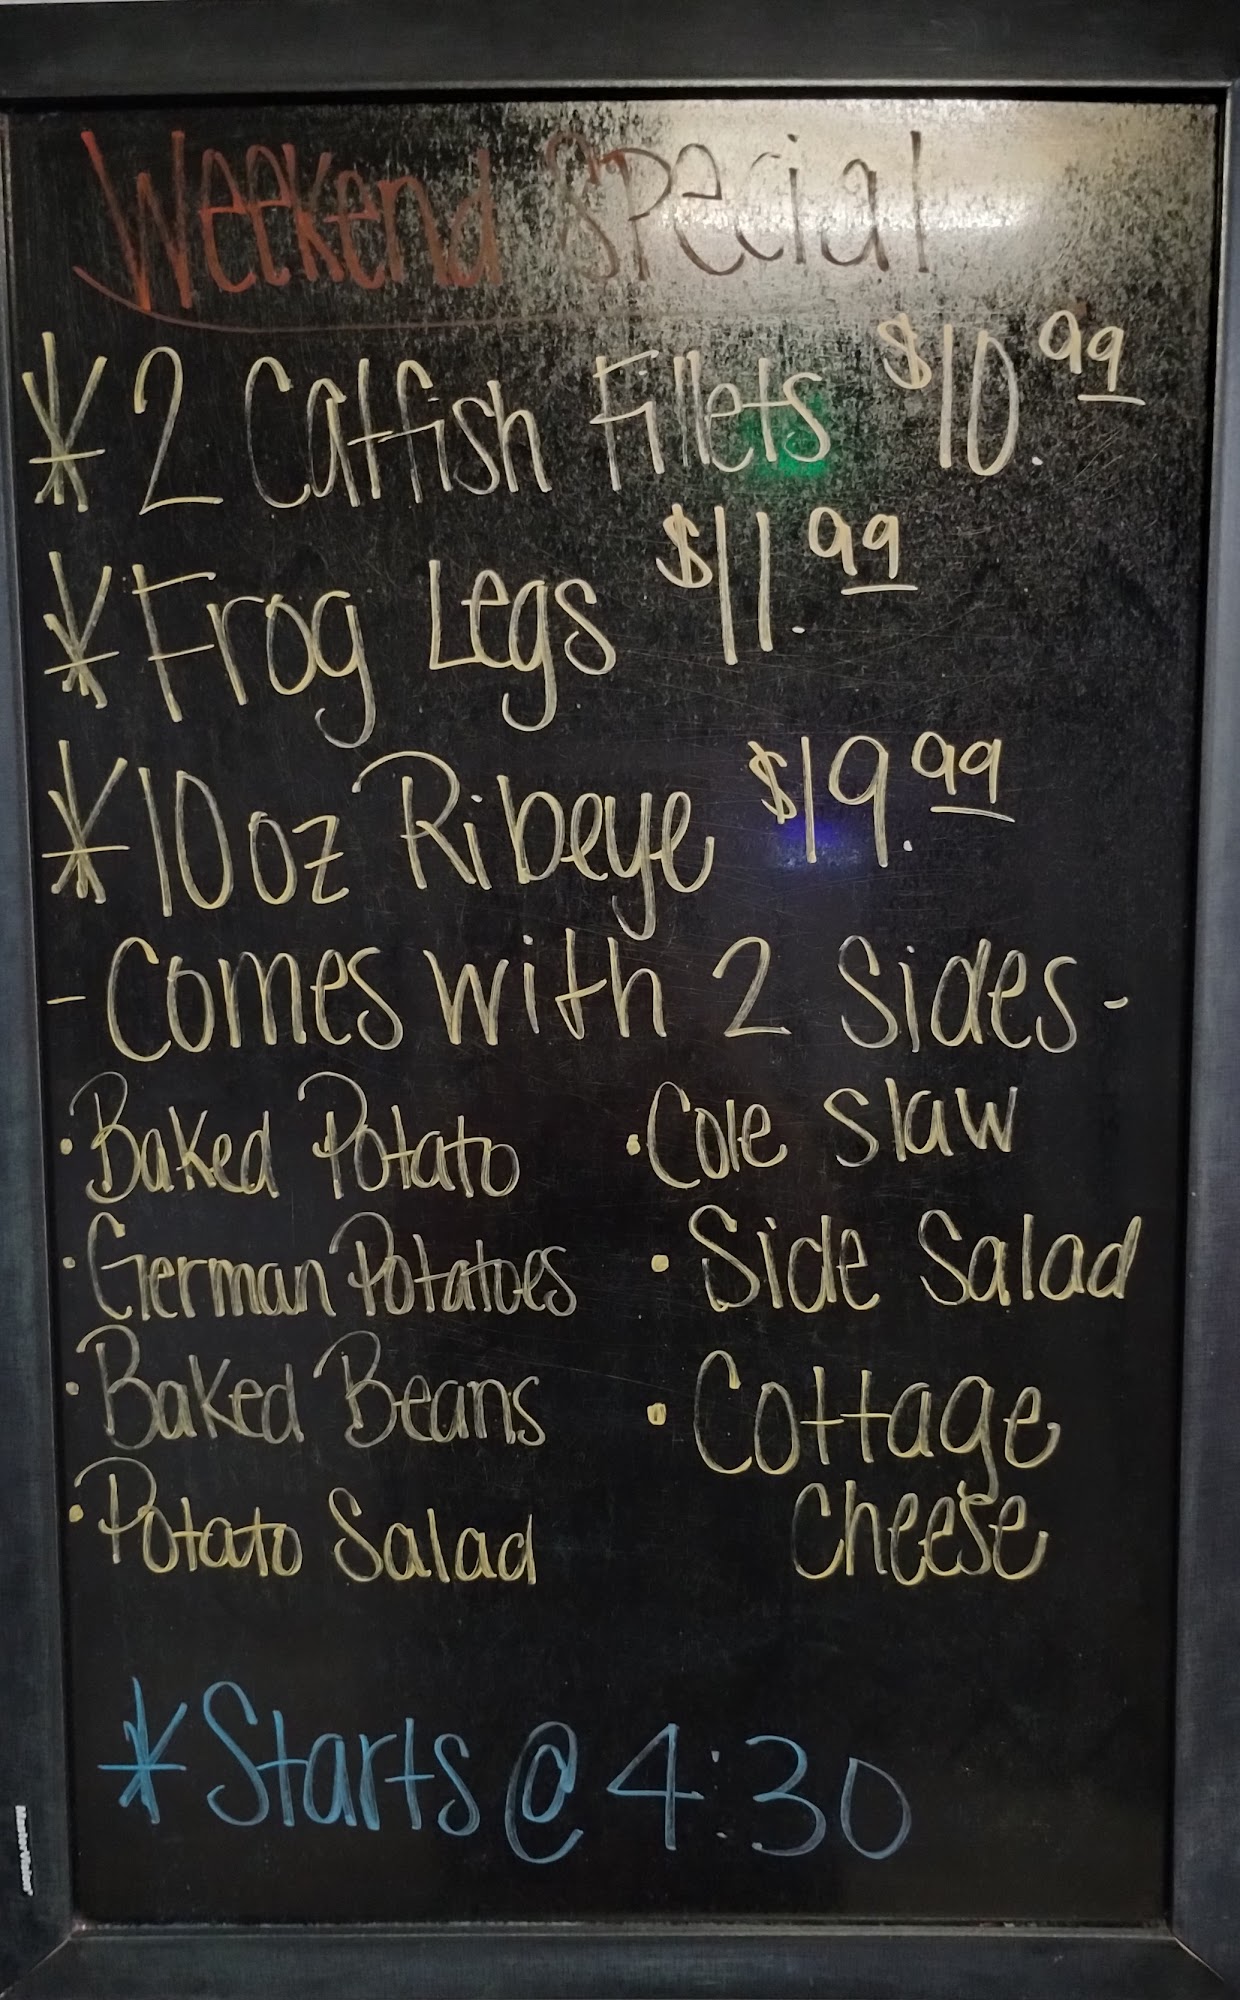 Weekend Special
* 2 Catfish Fillets $10.99
* Frog Legs $11.99
* 10 oz Ribeye $19.99
- Comes with 2 Sides -
· Baked Potato
· German Potatoes
· Baked Beans
· Potato Salad
· Cole Slaw
· Side Salad
· Cottage
Cheese
* Starts @ 4:30